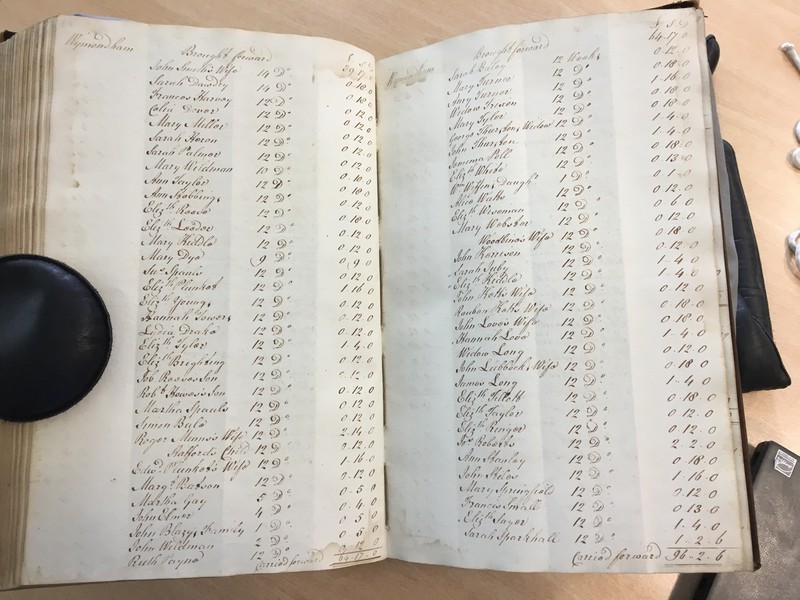 Wymondham
Brought forward
John Smith's Wife 14 Do 0.10.0
Sarah Dawdry 14 Do 0.10.0
Frances Harvoy 12 Do 0.12.0
12 Do 0.12.0
Mary Miller 12 Do 0.12.0
Sarah Heron 12 Do
Sarah Palmer 12 Do
Mary Weidman 10 Do
Ann Taylor 12 Do
Ann Stobbings 12 Do
Elizth. Reeve 12 Do
Elizth. Leeder 12 Do 0.12.0
Mary Kiddle 12 Do 0.12.0
Mary Dye 9 Do 0.9.0
Spauls 12 Do 0.12.0
Elizth. Plunket 12 Do 1.16.0
Elizth. Youngs 12 Do 0.12.0
Hannah Towers 12 Do 0.12.0
Liddia Drake 12 Do 0.12.0
Elizth. Tyler 12 Do 1.4.0
Elizth. Brighting 12 Do 0.12.0
Job Reeves Son 12 Do
Robt. Howes's Son 12 Do 0.12.0
Martha Spauls 12 Do 0.12.0
Simon Bale 12 Do 0.12.0
Roger Munns's Wife 12 Do 2.14.0
Stafford's Child 12 Do 0.12.0
Edwd. Plunket's Wife 12 Do 1.16.0
Margt. Batson 12 Do 0.12.0
Martha Gay 5 Do 0.5.0
John Elmer 4 Do 0.4.0
John Blazys Family 1 Do 0.5.0
John Weidman 2 Do 0.5.0
Ruth Payne 12 Do
Carried forward 64.17.0
Wymondham
Brought forward 64.17.0
Sarah Baley 12 Weeks 0.12.0
Mary Turner 12 Do 0.18.0
Amy Turner 12 Do 1.16.0
Widow 12 Do 0.18.0
Mary Tyler 12 Do 0.18.0
George Thurstons Widow 12 Do 1.4.0
John Thurston 12 Do 1.4.0
Jemima Poll 12 Do 0.18.0
Elizth. White 12 Do 0.13.0
Wm. Daught. 1 Do 0.1.0
Alice 12 Do 0.12.0
Elizth. Wiseman 12 Do 0.6.0
Mary Webster 12 Do 0.12.0
Woodbine's Wife 12 Do 0.18.0
John Harrison 12 Do 0.12.0
Sarah Juby 12 Do 1.4.0
Elizth. Kiddle 12 Do 1.4.0
John Kett's Wife 12 Do 0.12.0
Reuben Kett's Wife 12 Do 0.18.0
John Love's Wife 12 Do 0.18.0
Hannah Love 12 Do 1.4.0
Widow Long 12 Do 0.12.0
John Lubbock's Wife 12 Do 0.18.0
James Long 12 Do 1.4.0
Elizth. 12 Do 0.18.0
Elizth. Taylor 12 Do 0.12.0
Elizth. Ringer 12 Do 0.12.0
Roberts 12 Do 2.2.0
Ann Stanley 12 Do 0.18.0
John Stiles 12 Do 1.16.0
Mary Springfield 12 Do 0.12.0
Frances Small 12 Do 0.13.0
Elizth. Sayer 12 Do 1.4.0
Sarah Sparkhall 12 Do 1.2.6
Carried forward 96.2.6